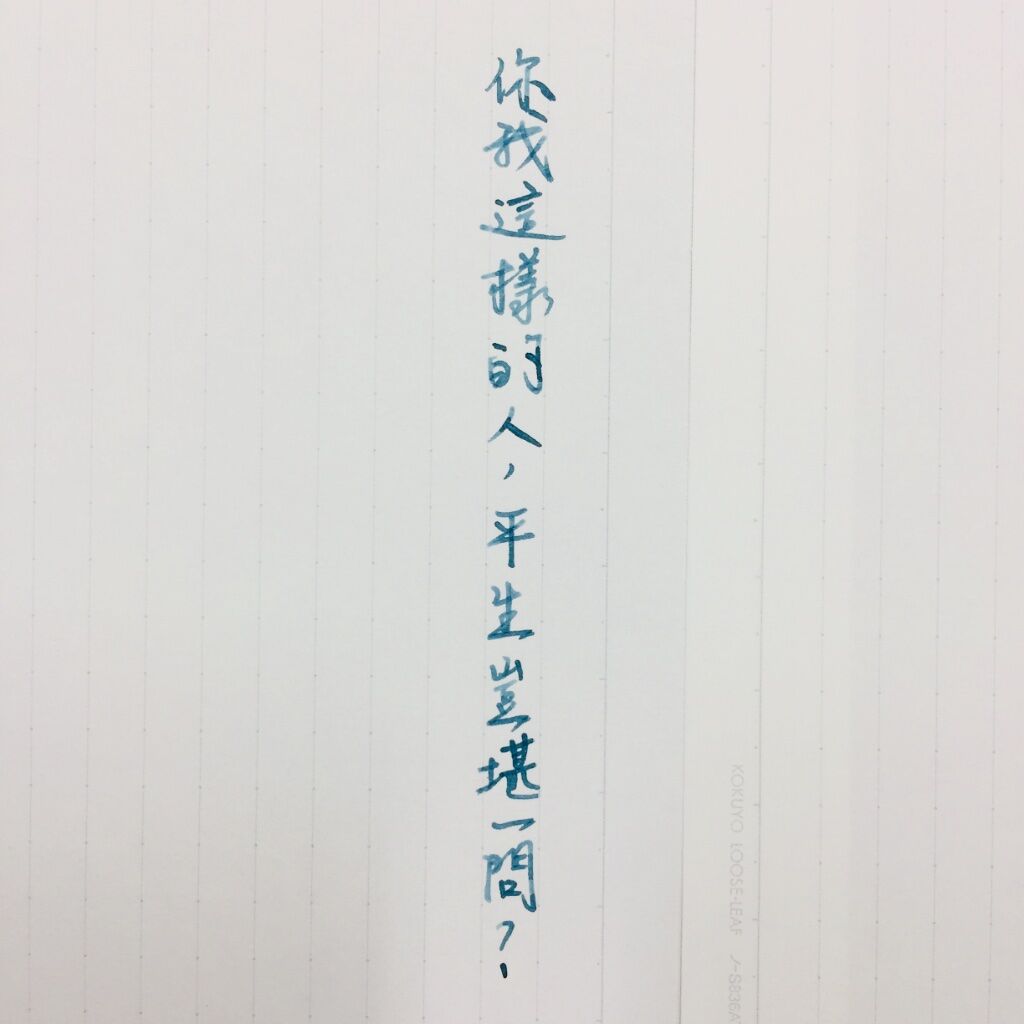 你我這樣的人，平生豈堪一問？
KOKUYO LOOSE-LEAF ノ-S836A